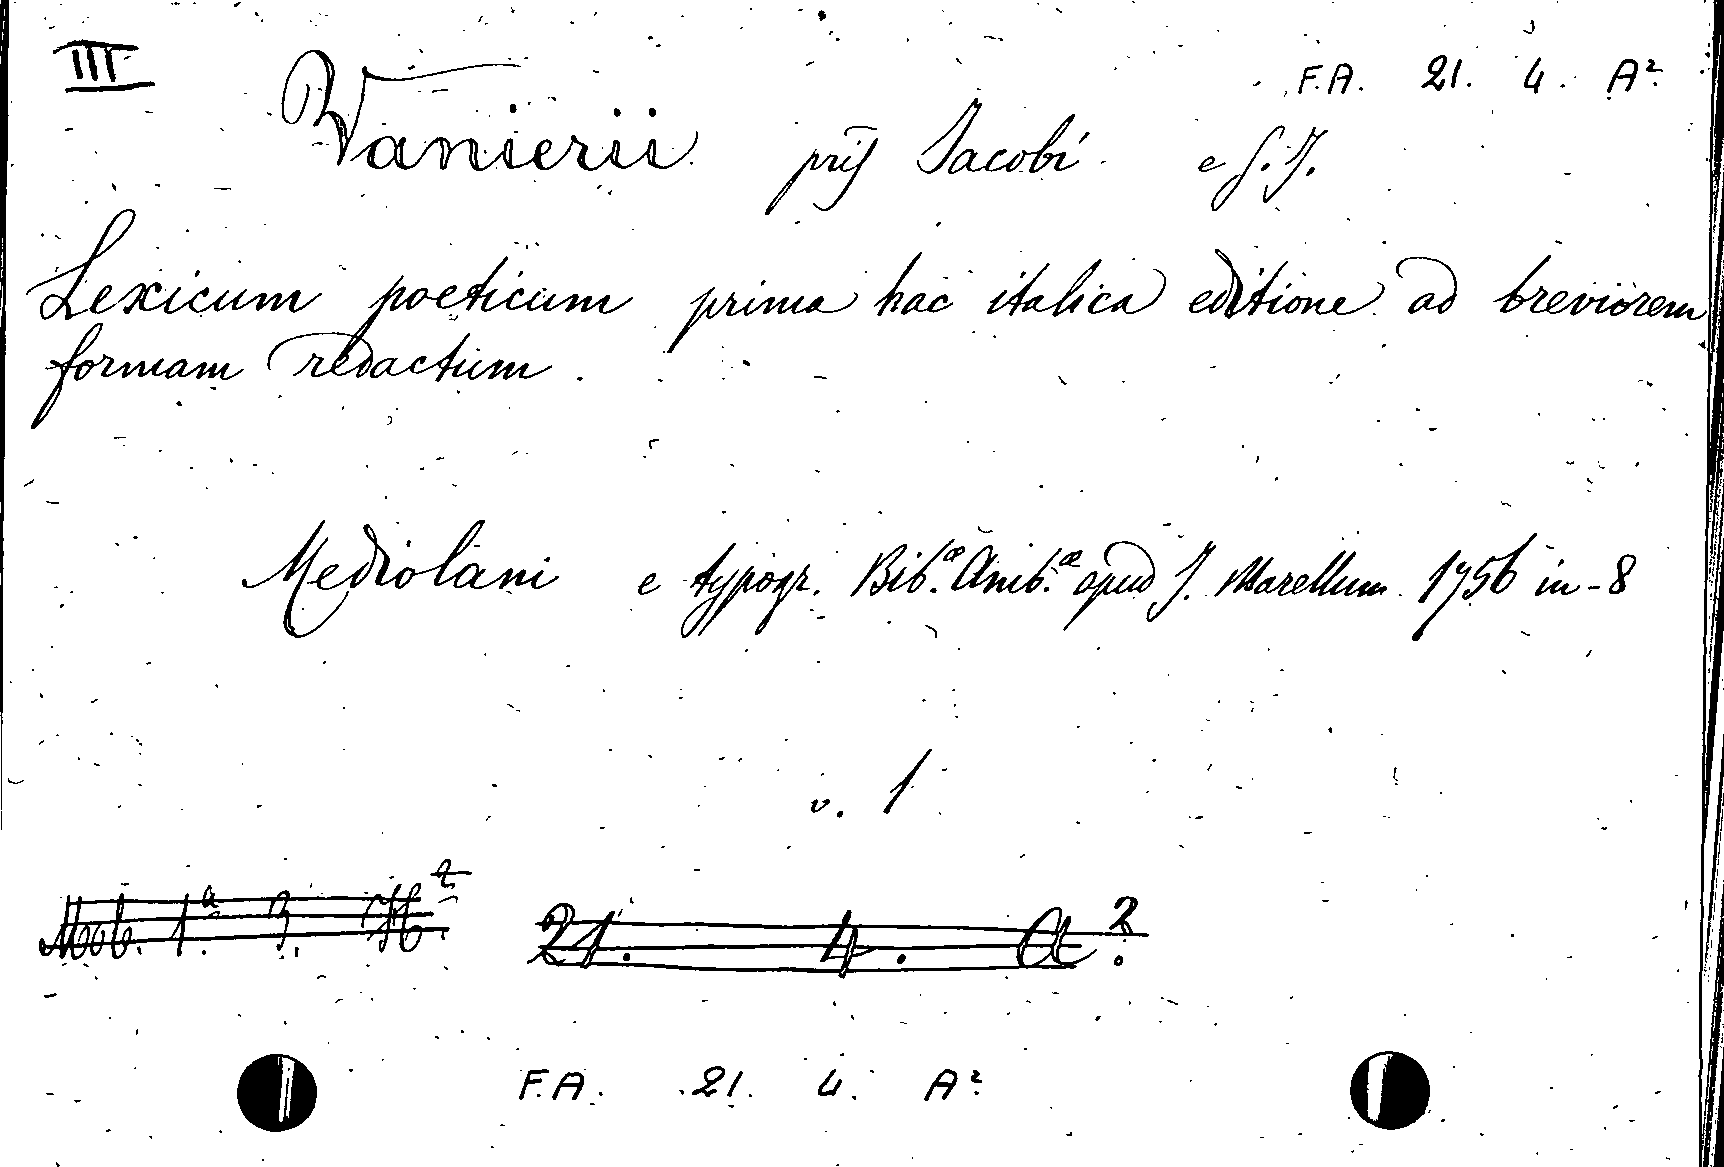 III
F.A. 21. 4. A²
Vanierii pris Jacobi e S.J.
Lexicum poeticum prima hac italica editione ad breviorem
formam redactum.
Mediolani e typogr. Bib.æ Amb.æ apud J. Marellum 1756 in-8
v. 1
Mob. 1.ª 3. H.²
21. 4. A.²
F.A. 21. 4. A²